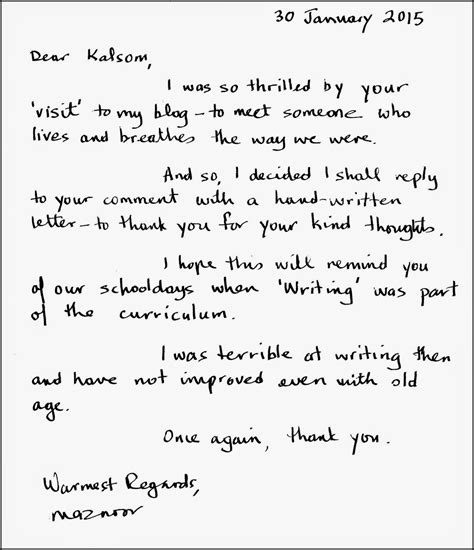 30 January 2015
Dear Kalsom,
I was so thrilled by your
'visit' to my blog – to meet someone who
lives and breathes the way we were.
And so, I decided I shall reply
to your comment with a hand-written
letter – to thank you for your kind thoughts.
I hope this will remind you
of our schooldays when 'Writing' was part
of the curriculum.
I was terrible at writing then
and have not improved even with old
age.
Once again, thank you.
Warmest Regards,
maznoor